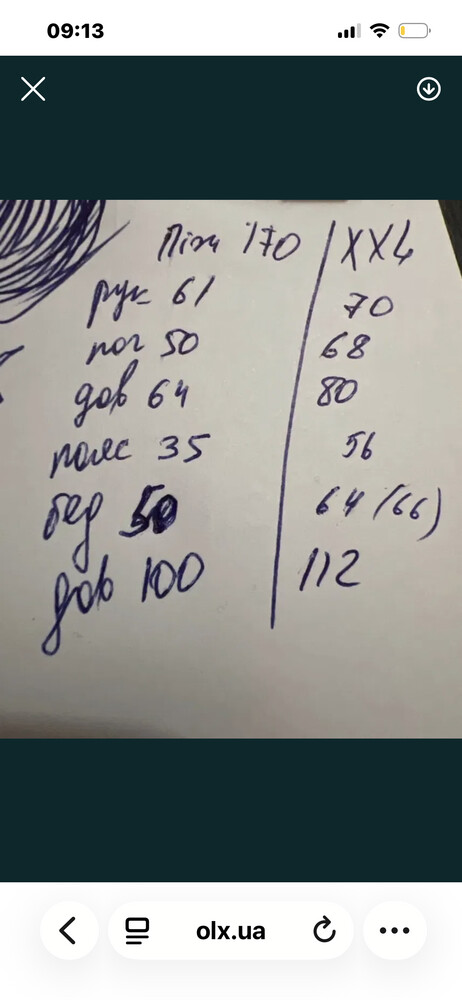 09:13
Піж 170 | XXL
рук 61 70
пог 50 68
дов 64 80
пояс 35 56
бед 50 64 (66)
дов 100 112
olx.ua